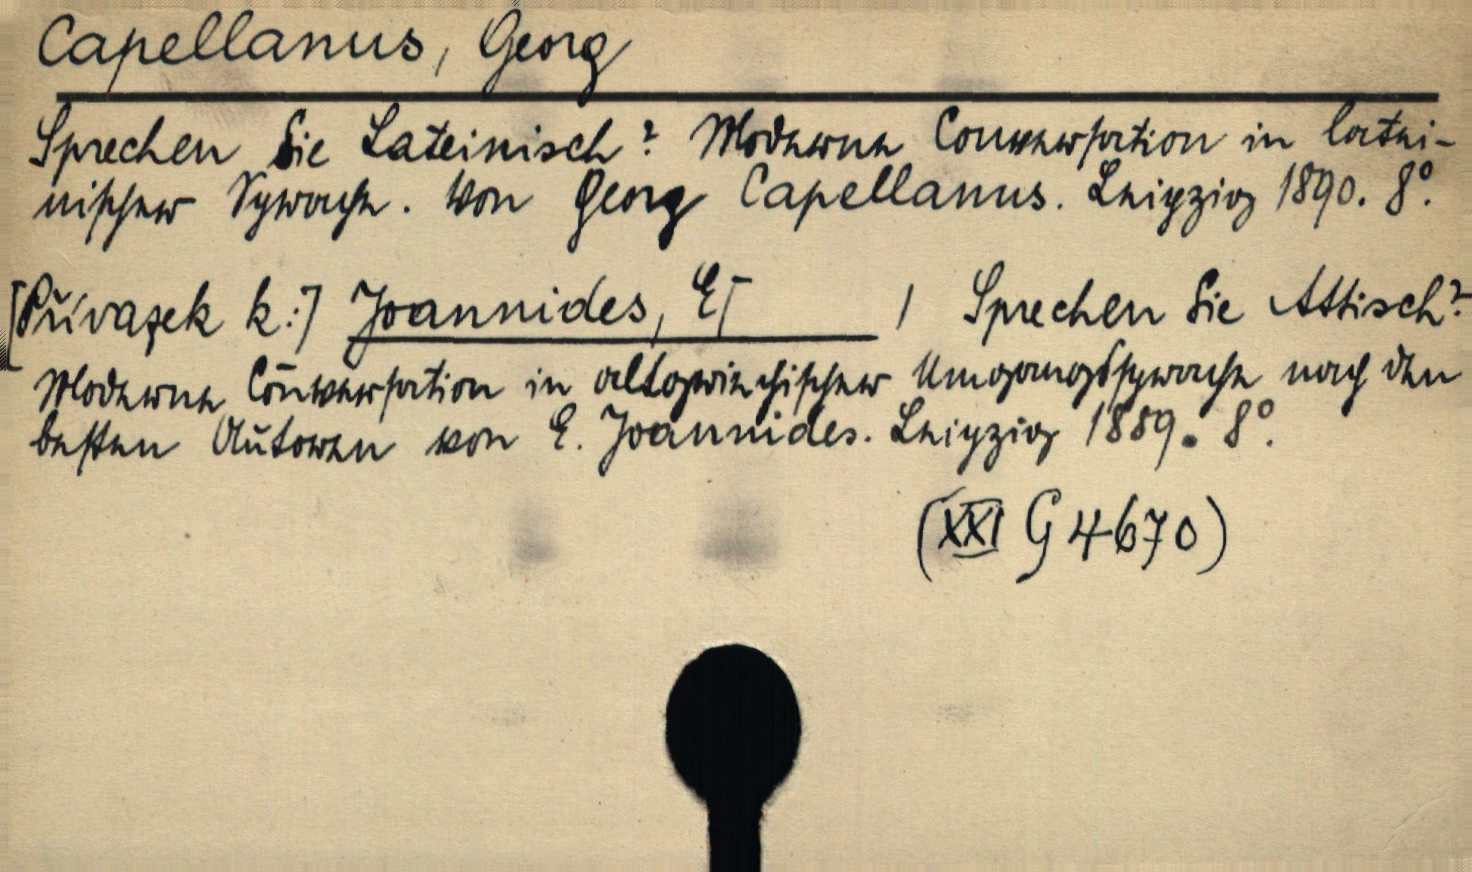 Capellanus, Georg
Sprechen Sie Lateinisch? Moderne Conversation in latei-
nischer Sprache. Von Georg Capellanus. Leipzig 1890. 8°.
[Přívazek k:] Joannides, E[ ] Sprechen Sie Attisch?
Moderne Conversation in altgriechischer Umgangssprache nach den
besten Autoren von E. Joannides. Leipzig 1889. 8°.
(XXI G 4670)